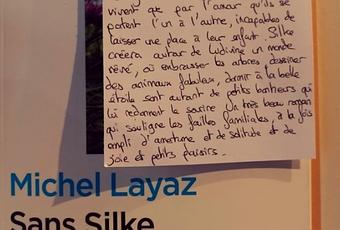 vivent que par l'amour qu'ils se
portent l'un à l'autre, incapables de
laisser une place à leur enfant. Silke
créera autour de Ludivine un monde
rêvé, où embrasser les arbres, dessiner
des animaux fabuleux, dormir à la belle
étoile sont autant de petits bonheurs qui
lui redonnent le sourire. Un très beau roman
qui souligne les failles familiales, à la fois
empli d'amertume et de solitude et de
joie et petits plaisirs.
Michel Layaz
Sans Silke